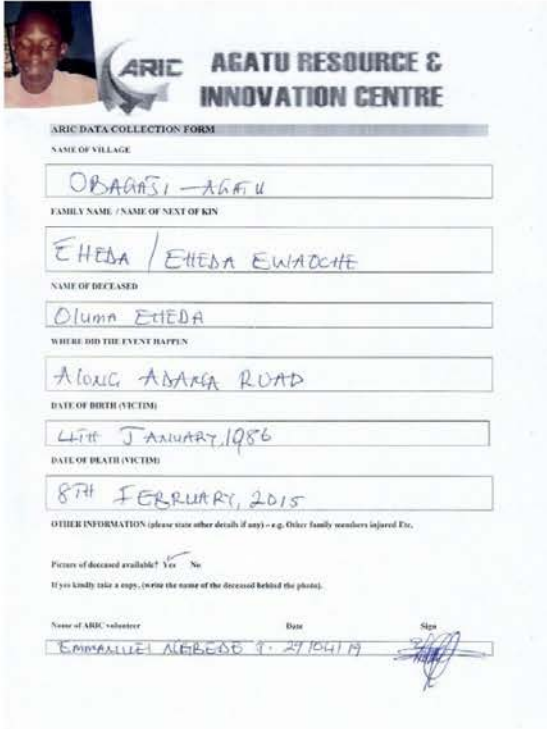 ARIC AGATU RESOURCE &
INNOVATION CENTRE
ARIC DATA COLLECTION FORM
NAME OF VILLAGE
OBAGAJI - AGATU
FAMILY NAME / NAME OF NEXT OF KIN
EHEDA / EHEDA EWAOCHE
NAME OF DECEASED
Oluma EHEDA
WHERE DID THE EVENT HAPPEN
Along ADANGA ROAD
DATE OF BIRTH (VICTIM)
4TH JANUARY, 1986
DATE OF DEATH (VICTIM)
8TH FEBRUARY, 2015
OTHER INFORMATION (please state other details if any) – e.g. Other family members injured Etc.
Picture of deceased available? Yes No
If yes kindly take a copy, (write the name of the deceased behind the photo).
Name of ARIC volunteer Date Sign
EMMANUEL 27/04/19